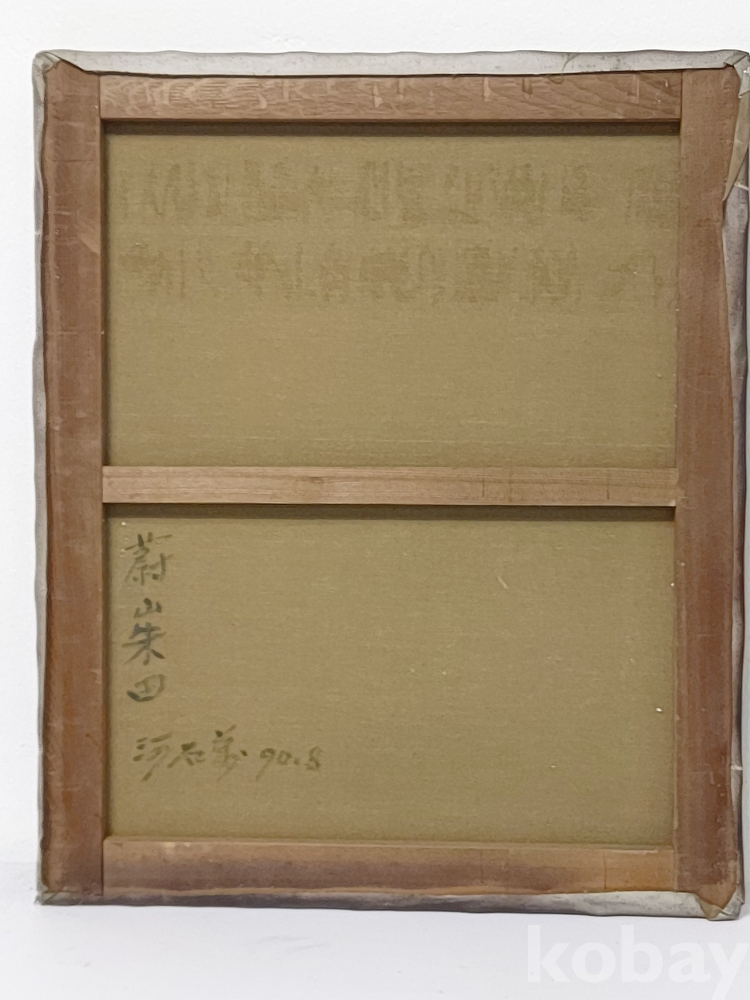 蔚山朱田
河石萬 90.8
kobay